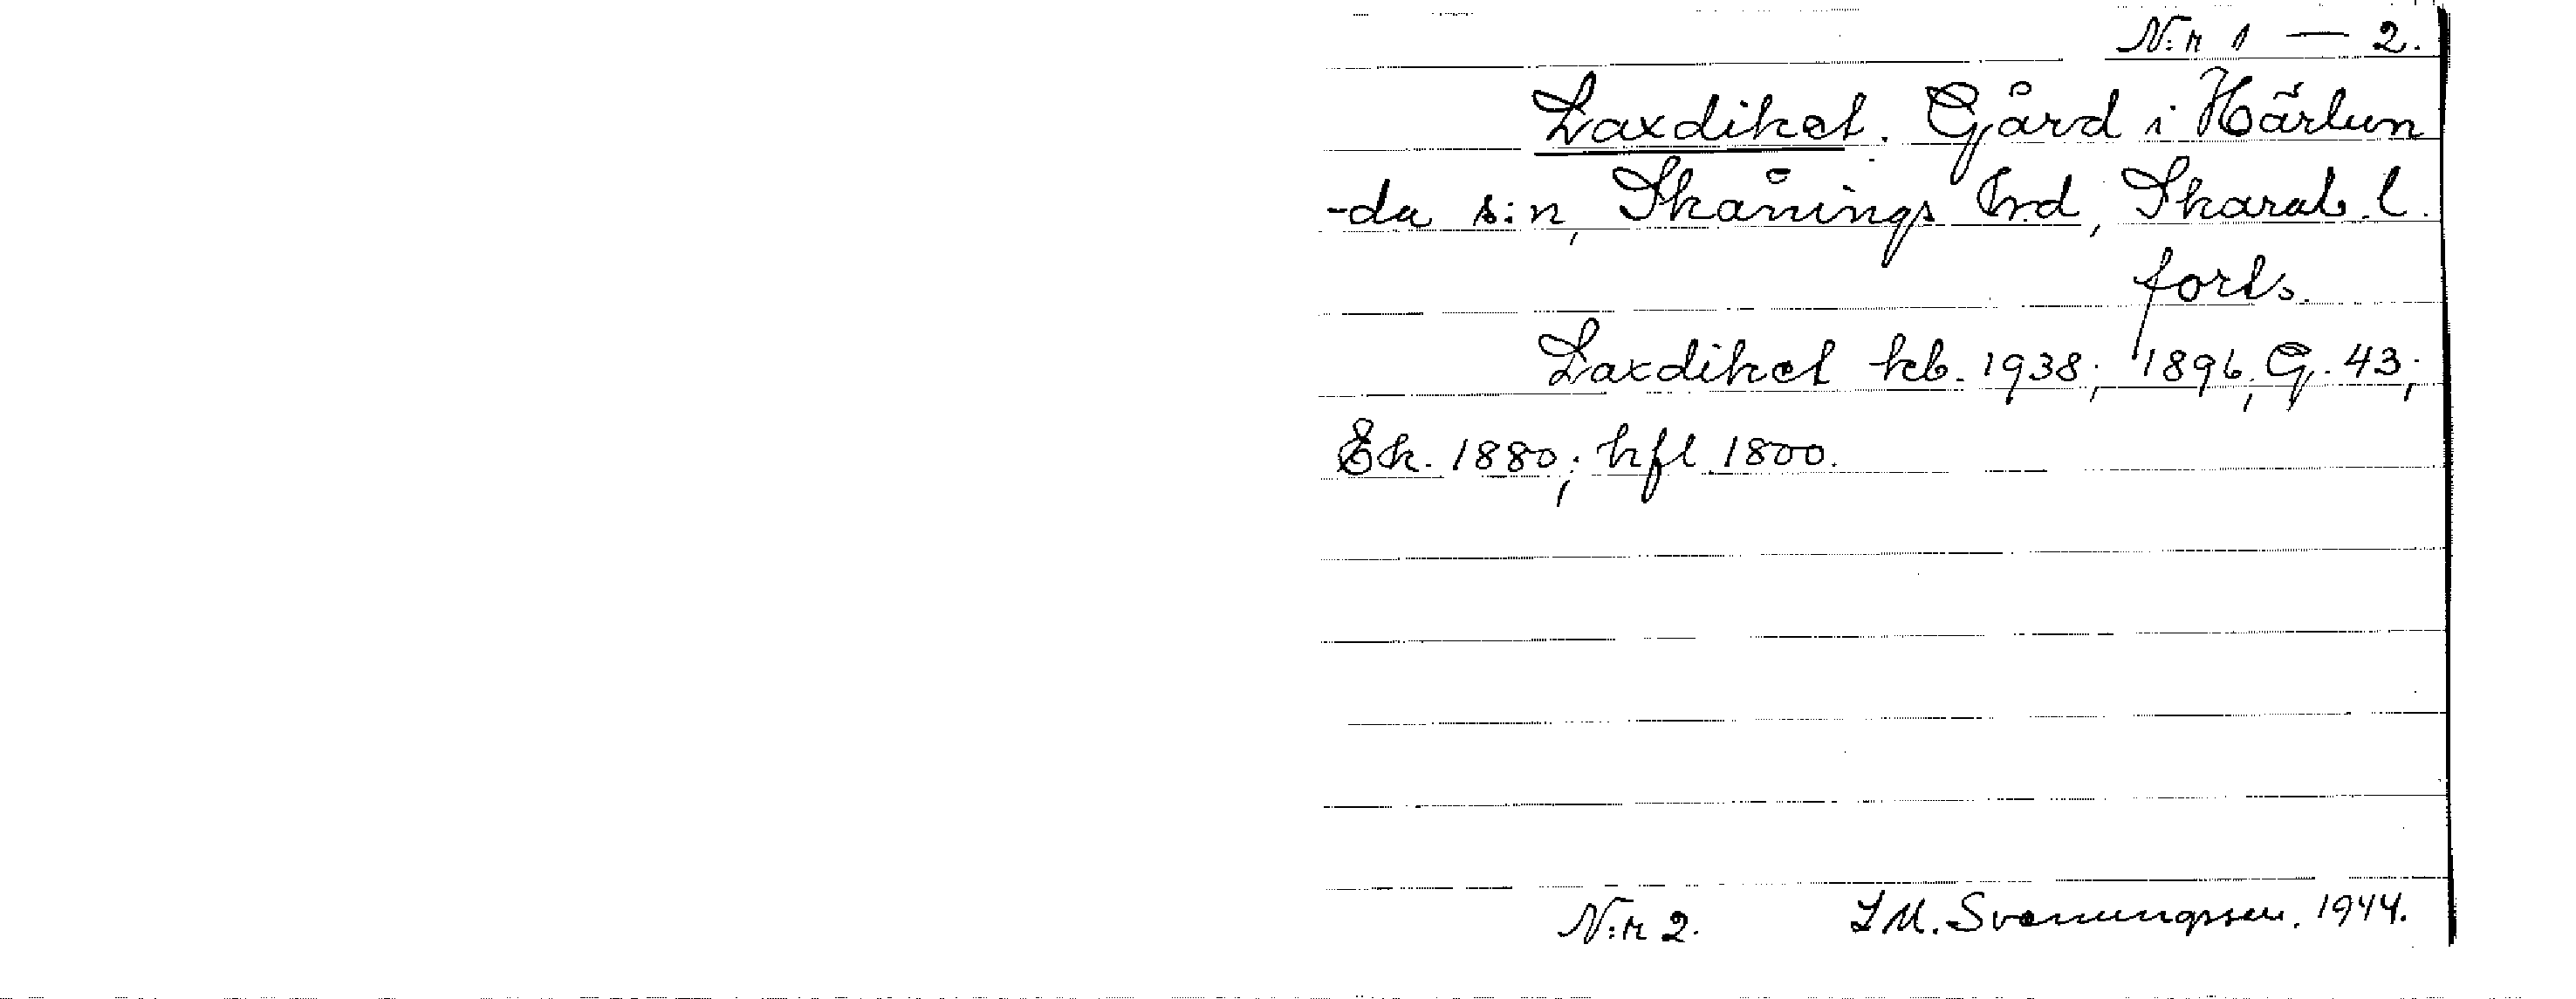 N:r 1 — 2.
Laxdiket. Gård i Härlun
-da s:n, Skånings hrd, Skarab. l.
forts.
Laxdiket kb. 1938; 1896; G. 43;
Ek. 1880; hfl 1800.
N:r 2. I M. Svenungsson. 1944.